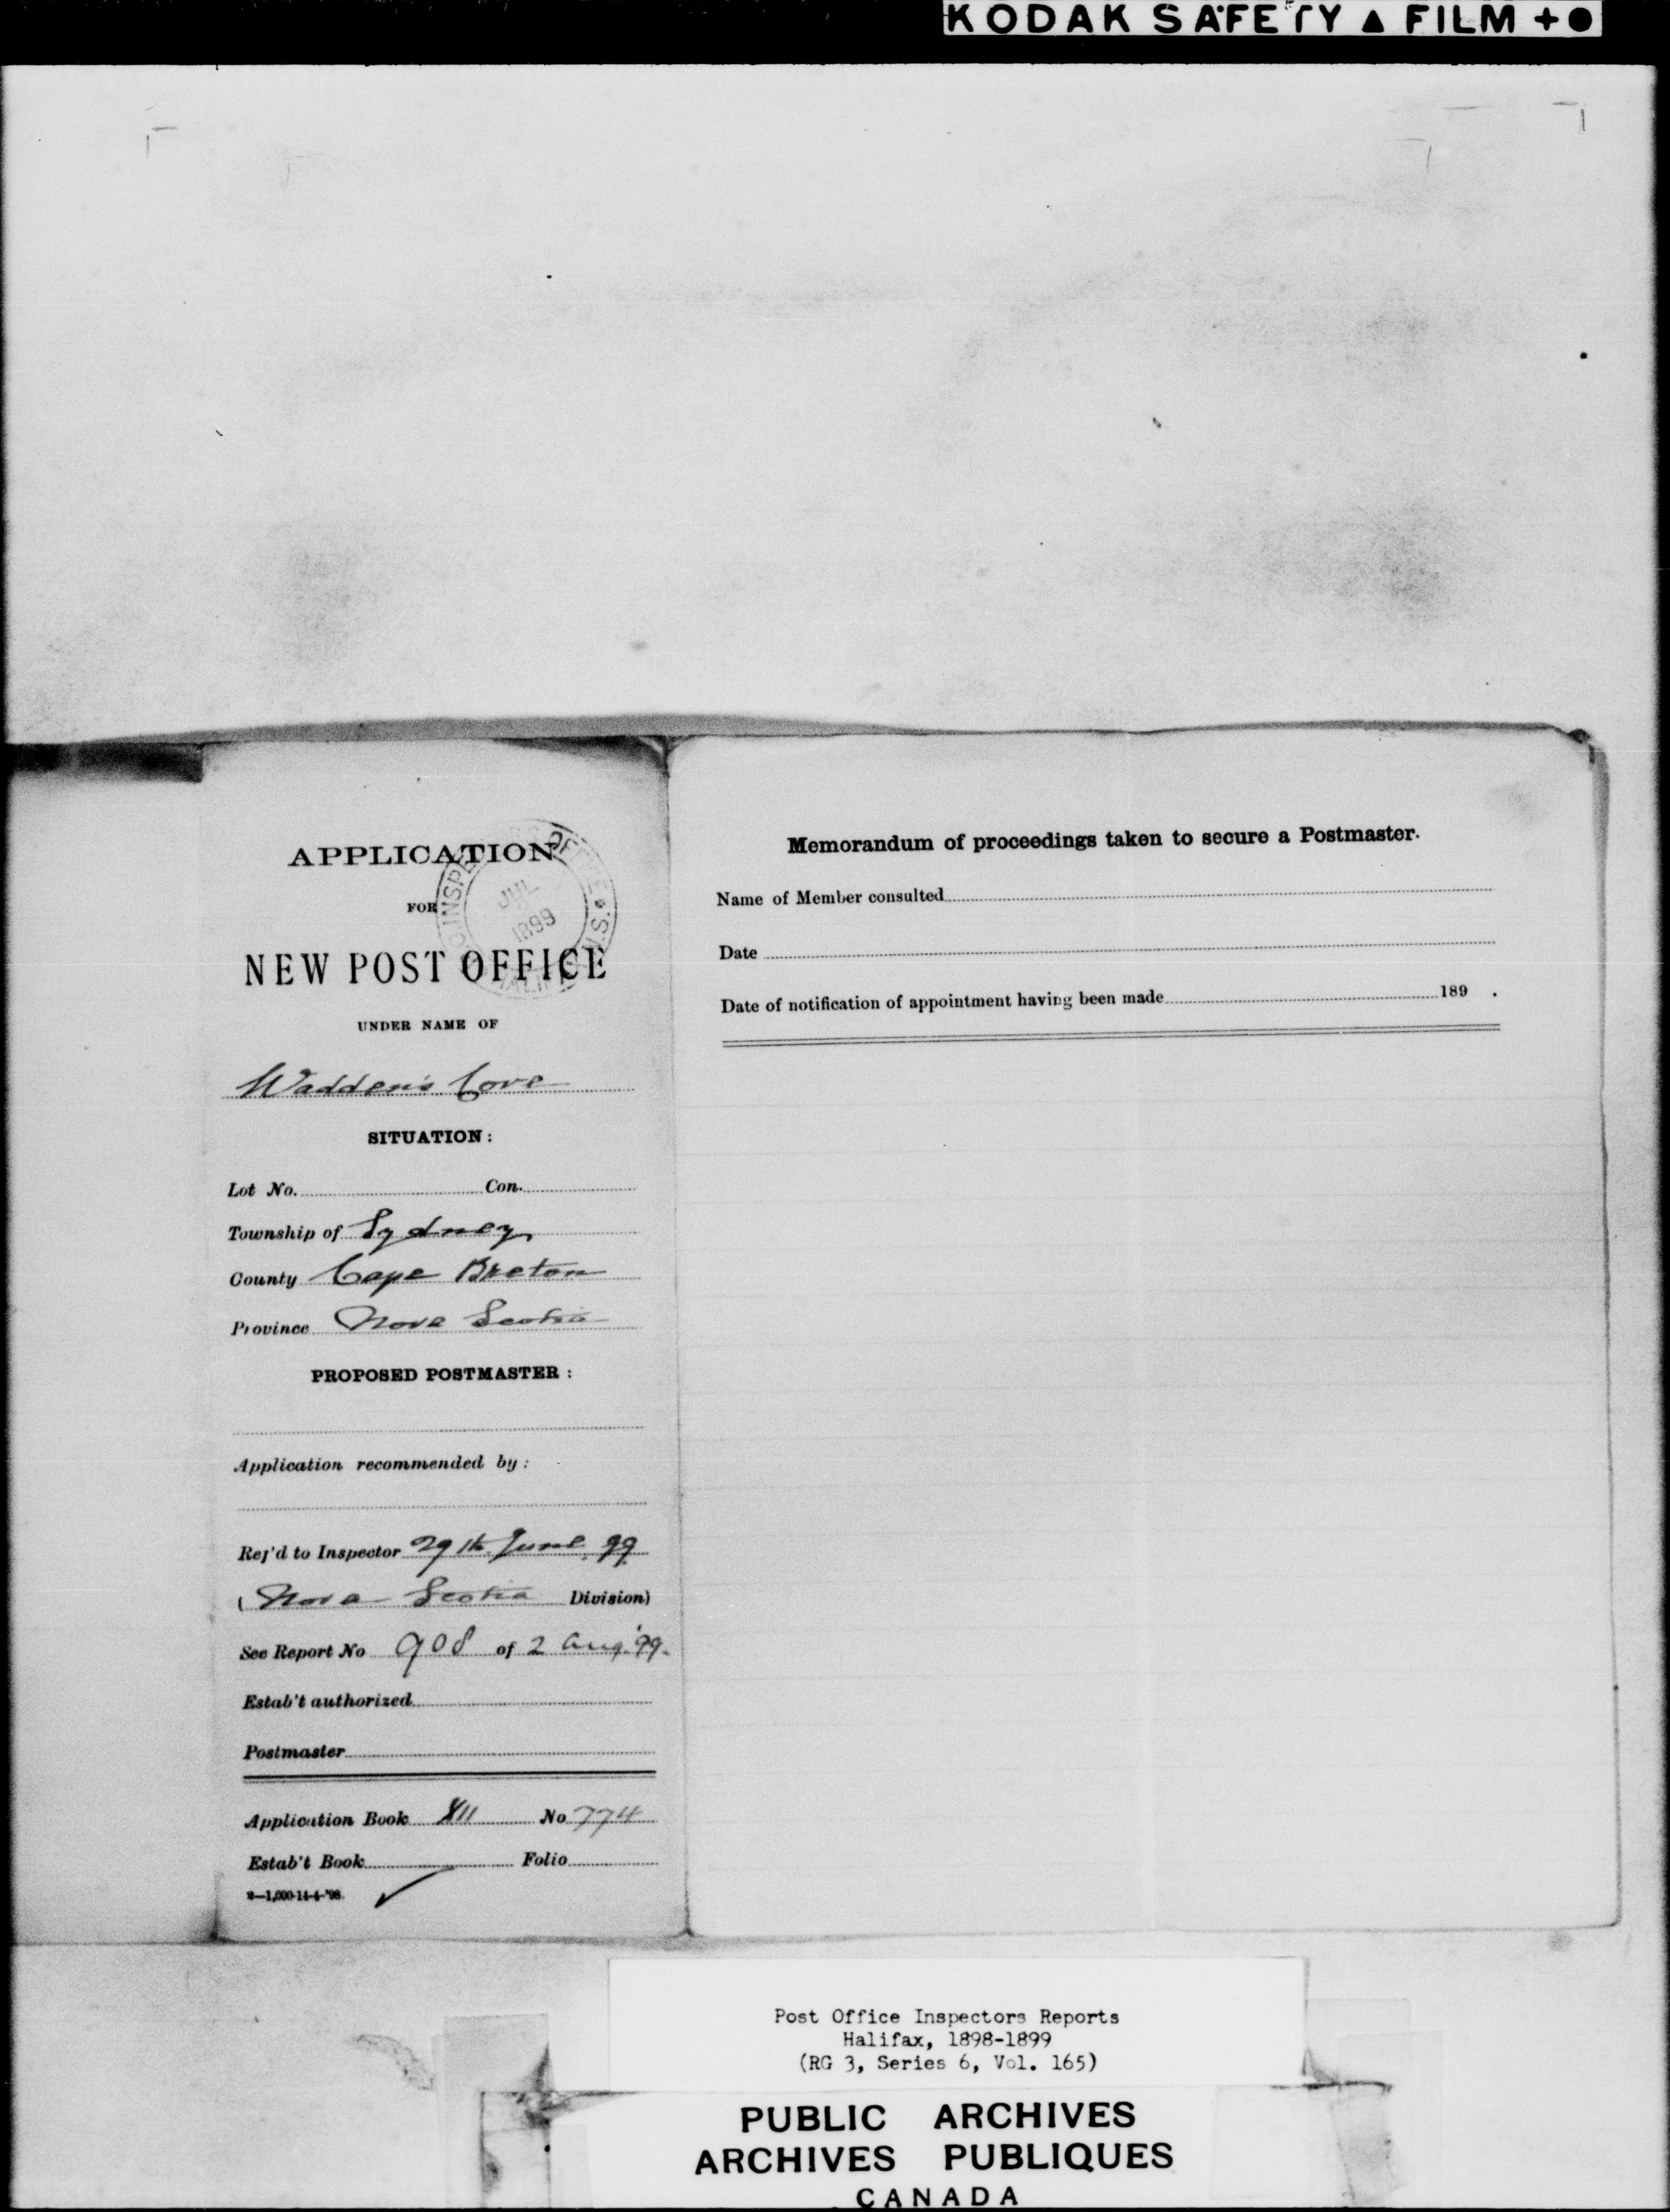 KODAK SAFETY ▲ FILM + ●
APPLICATION
FOR
NEW POST OFFICE
UNDER NAME OF
Wadden's Cove
SITUATION:
Lot No. Con.
Township of Sydney
County Cape Breton
Province Nova Scotia
PROPOSED POSTMASTER:
Application recommended by:
Ref'd to Inspector 29th June 99
(Nova Scotia Division)
See Report No 908 of 2 Aug. '99.
Estab't authorized
Postmaster
Application Book XII No 774
Estab't Book Folio
2—1,000-14-4-'98.
JUL
1899
Memorandum of proceedings taken to secure a Postmaster.
Name of Member consulted
Date
Date of notification of appointment having been made 189 .
Post Office Inspectors Reports
Halifax, 1898-1899
(RG 3, Series 6, Vol. 165)
PUBLIC ARCHIVES
ARCHIVES PUBLIQUES
CANADA